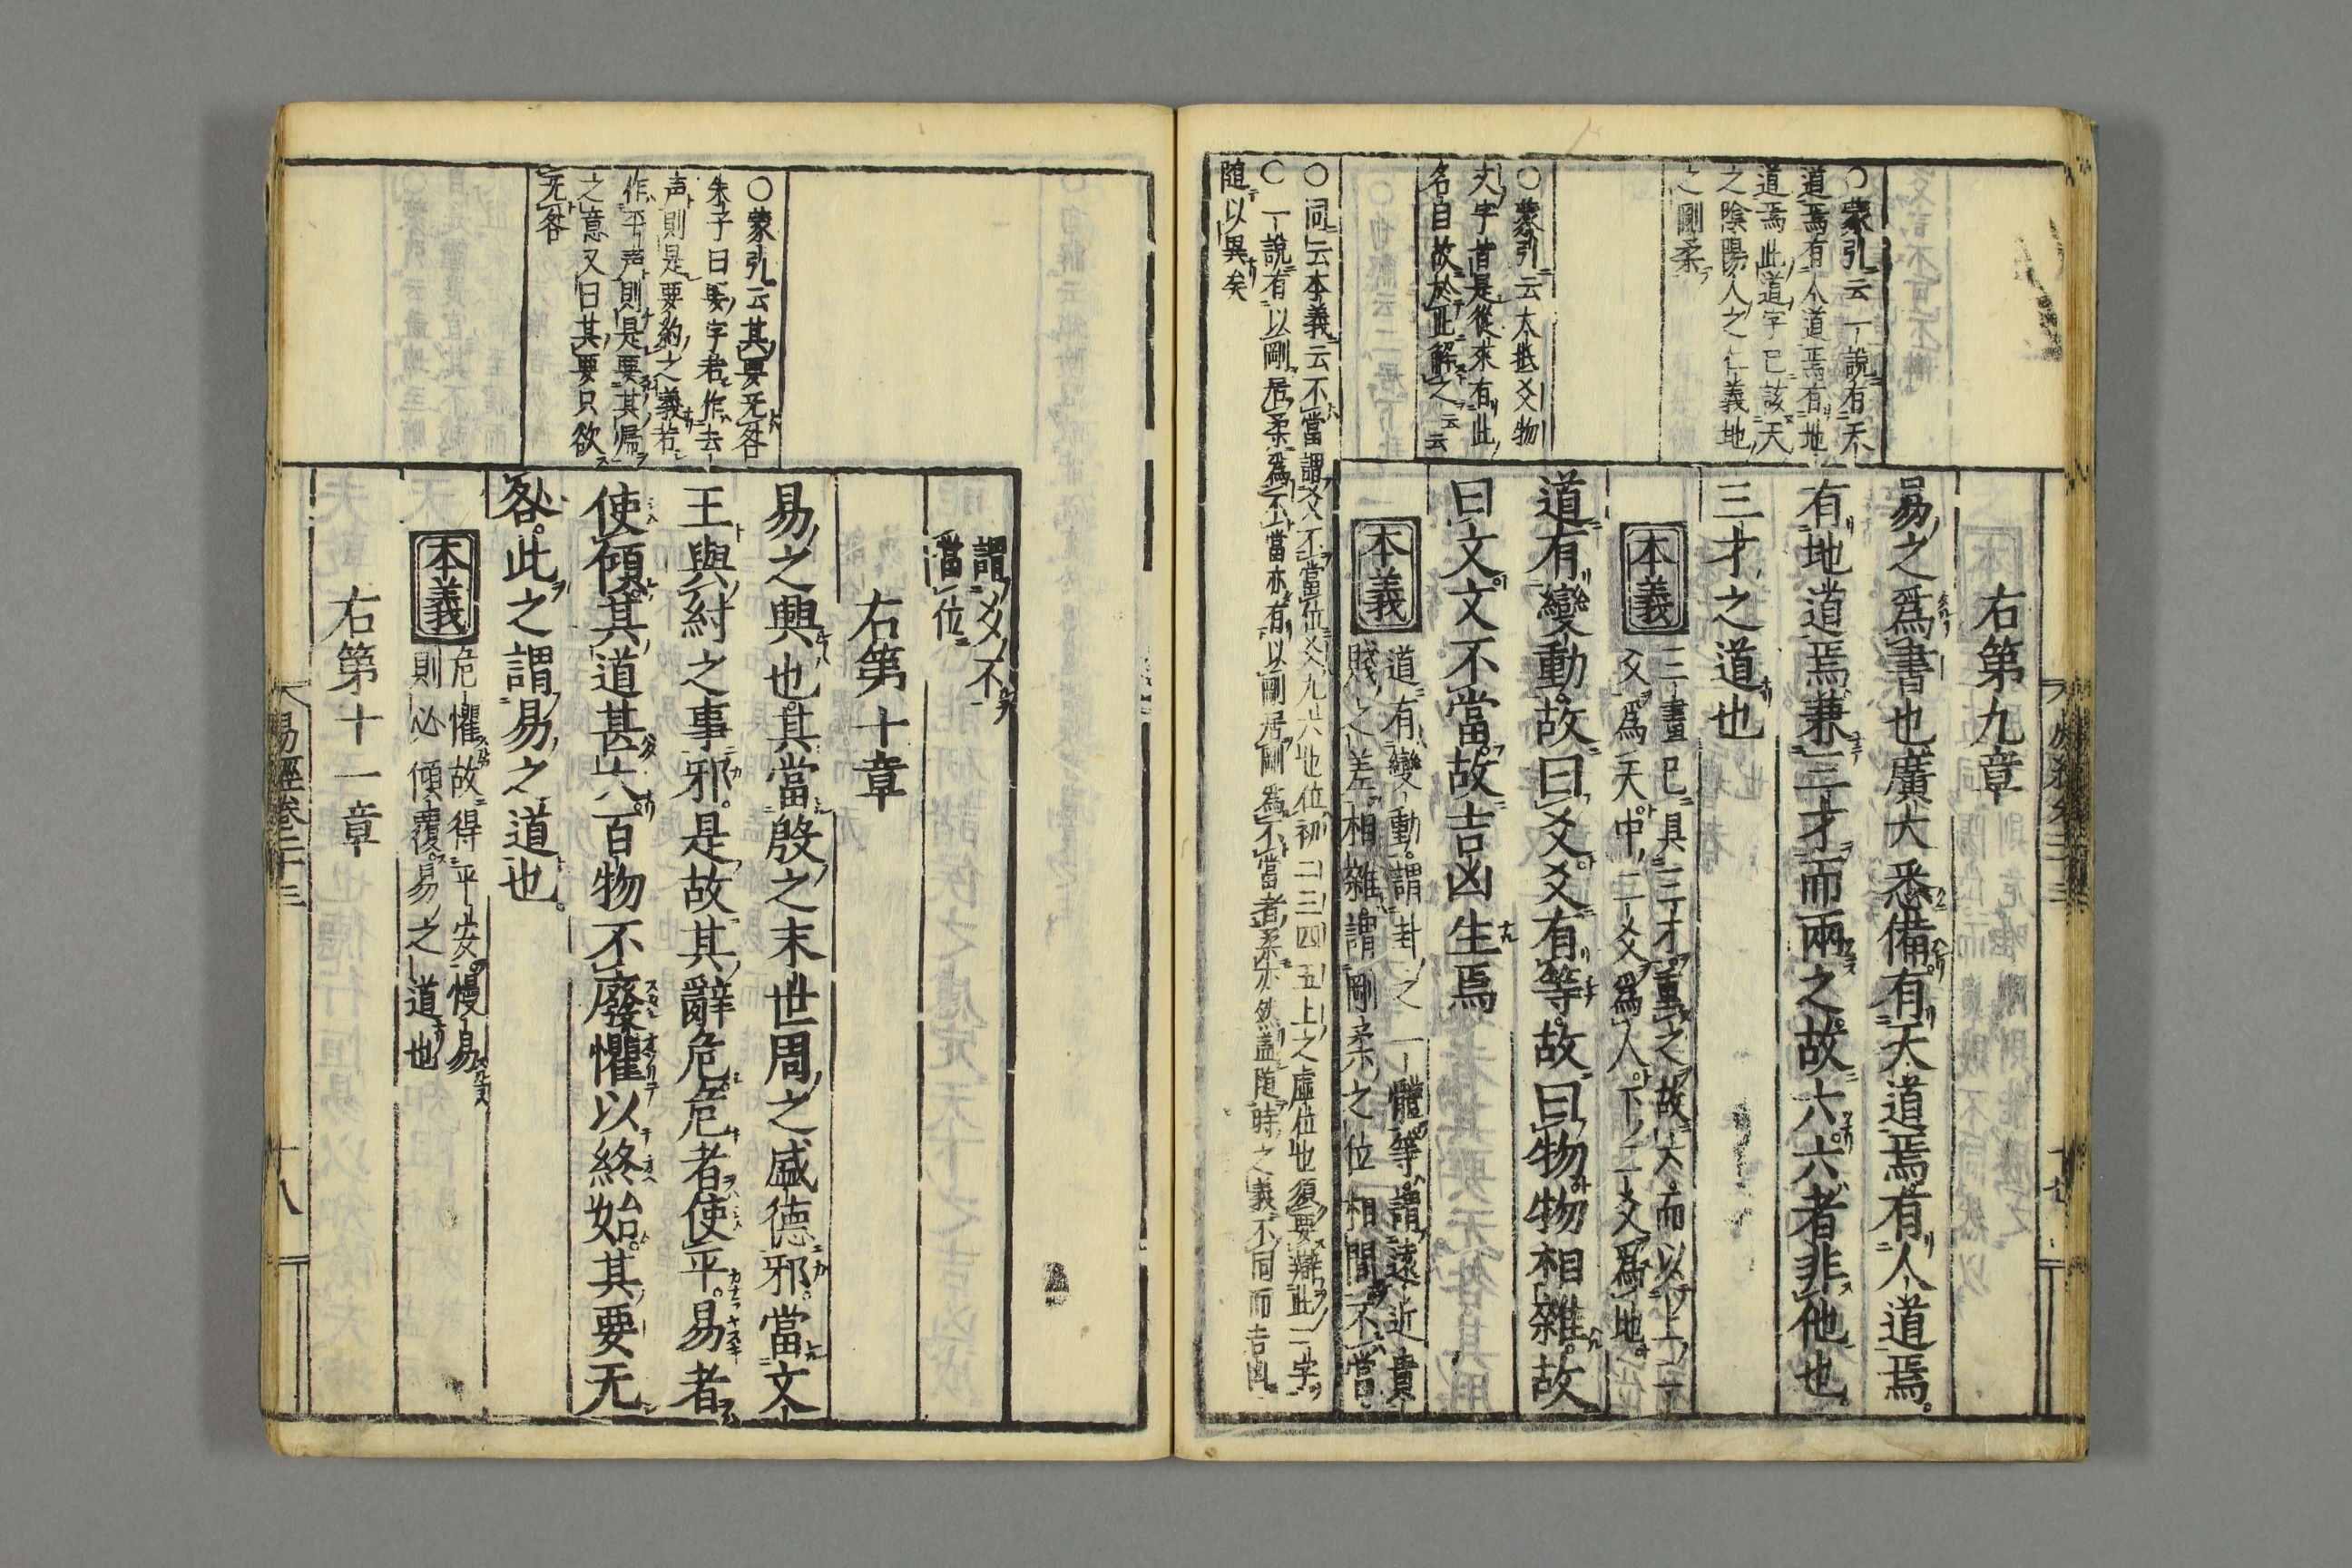 右第九章
易之爲書也廣大悉備有天道焉有人道焉。
有地道焉兼三才而兩之故六六者非他也。
三才之道也
本義
三畫已具三才重之故六而以上二
爻爲天中二爻爲人下二爻爲地
道有變動故曰爻爻有等故曰物物相雜故
曰文文不當故吉凶生焉
本義
道有變動謂卦之一體等謂遠近貴
賤之差相雜謂剛柔之位相間不當
○蒙引云一說有天
道焉有人道焉有地
道焉此道字已該天
之陰陽人之仁義地
之剛柔
○蒙引云大抵爻物
文字昔是從來有此
名自故於此解之云云
○同云本義云不當謂爻不當位爻九六也位初二三四五上之虛位也須要辯此二字
○一說有以剛居柔爲不當亦有以剛居剛爲不當者柔亦然蓋随時之義不同而吉凶
随以異矣
謂爻不
當位
右第十章
易之興也其當殷之末世周之盛德邪當文
王與紂之事邪。是故其辭危危者使平易者
使傾其道甚大百物不廢懼以終始。其要无
咎。此之謂易之道也。
本義
危懼故得平安慢易
則必傾覆易之道也
右第十一章
○蒙引云其要无咎
朱子曰要字若作去
声則是要約之義若
作平声則是要其歸
之意又曰其要只欲
无咎
易經卷二十三
十八